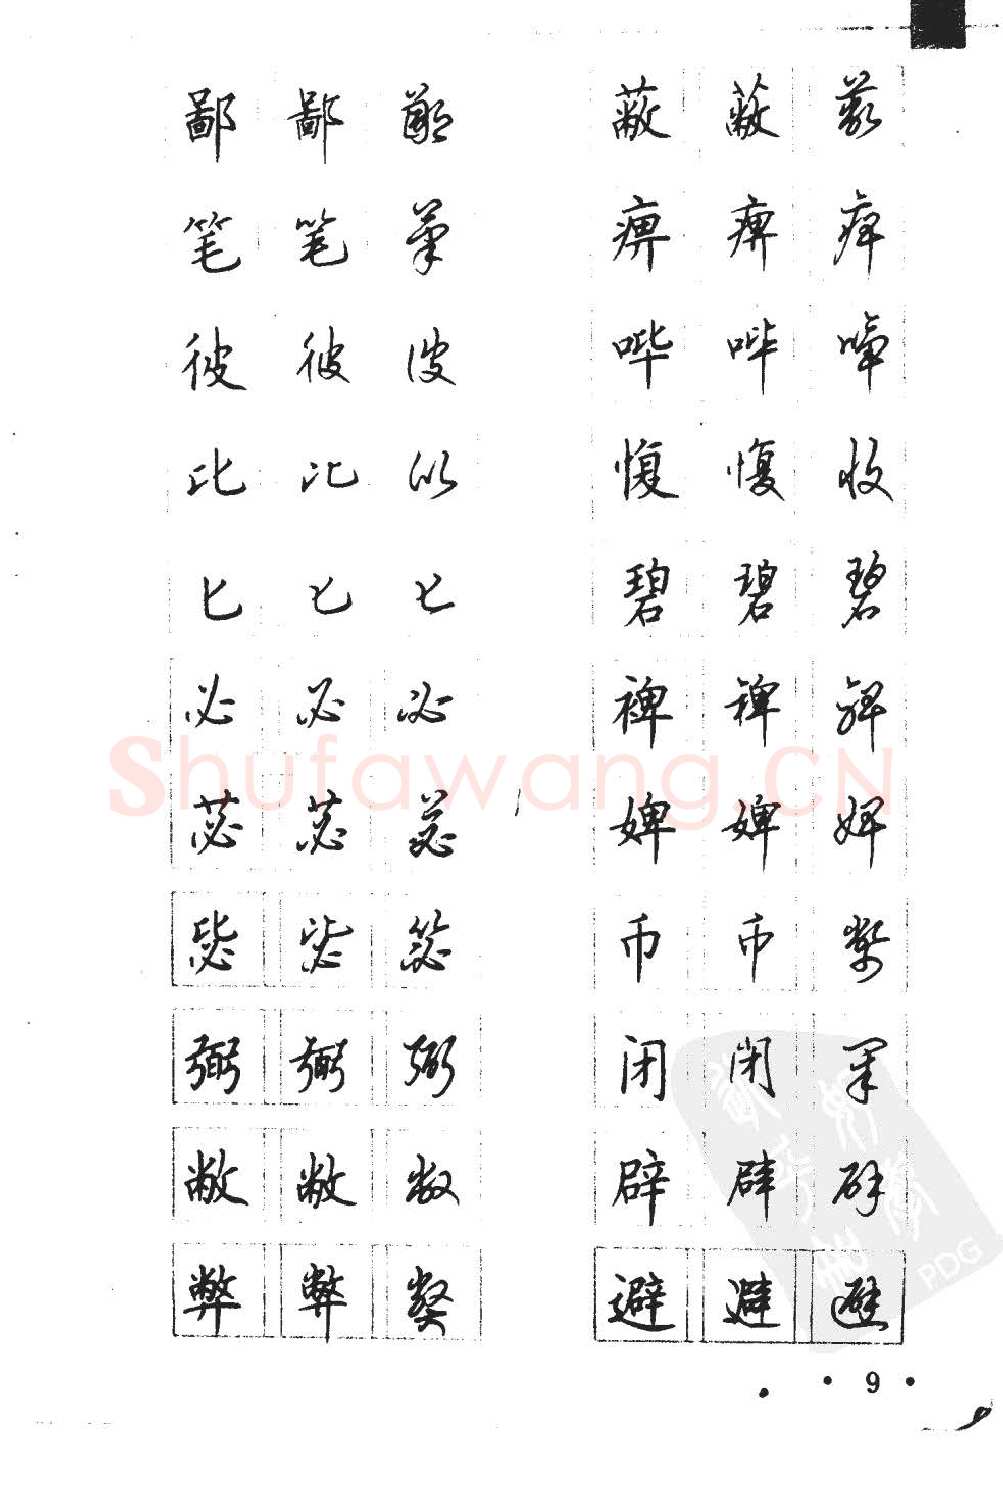 鄙 鄙 鄙 蔽 蔽 蔽
笔 笔 笔 痹 痹 痹
彼 彼 彼 哔 哔 哔
比 比 比 愎 愎 愎
匕 匕 匕 碧 碧 碧
必 必 必 裨 裨 裨
苾 苾 苾 婢 婢 婢
毖 毖 毖 币 币 幣
弼 弼 弼 闭 闭 闭
敝 敝 敝 辟 辟 辟
弊 弊 弊 避 避 避
Shufawang.CN
PDG
• 9 •